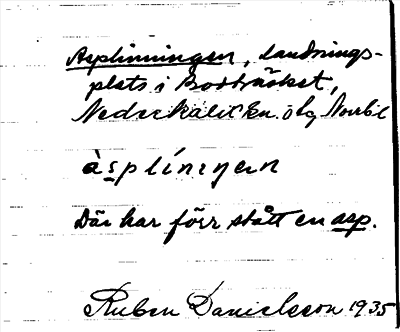 Asplinningen, landnings-
plats i Bodträsket,
Nederkalix sn. o. lg, Norrb.l
àsplíniŋen
Där har förr stått en asp.
Ruben Danielsson 1935